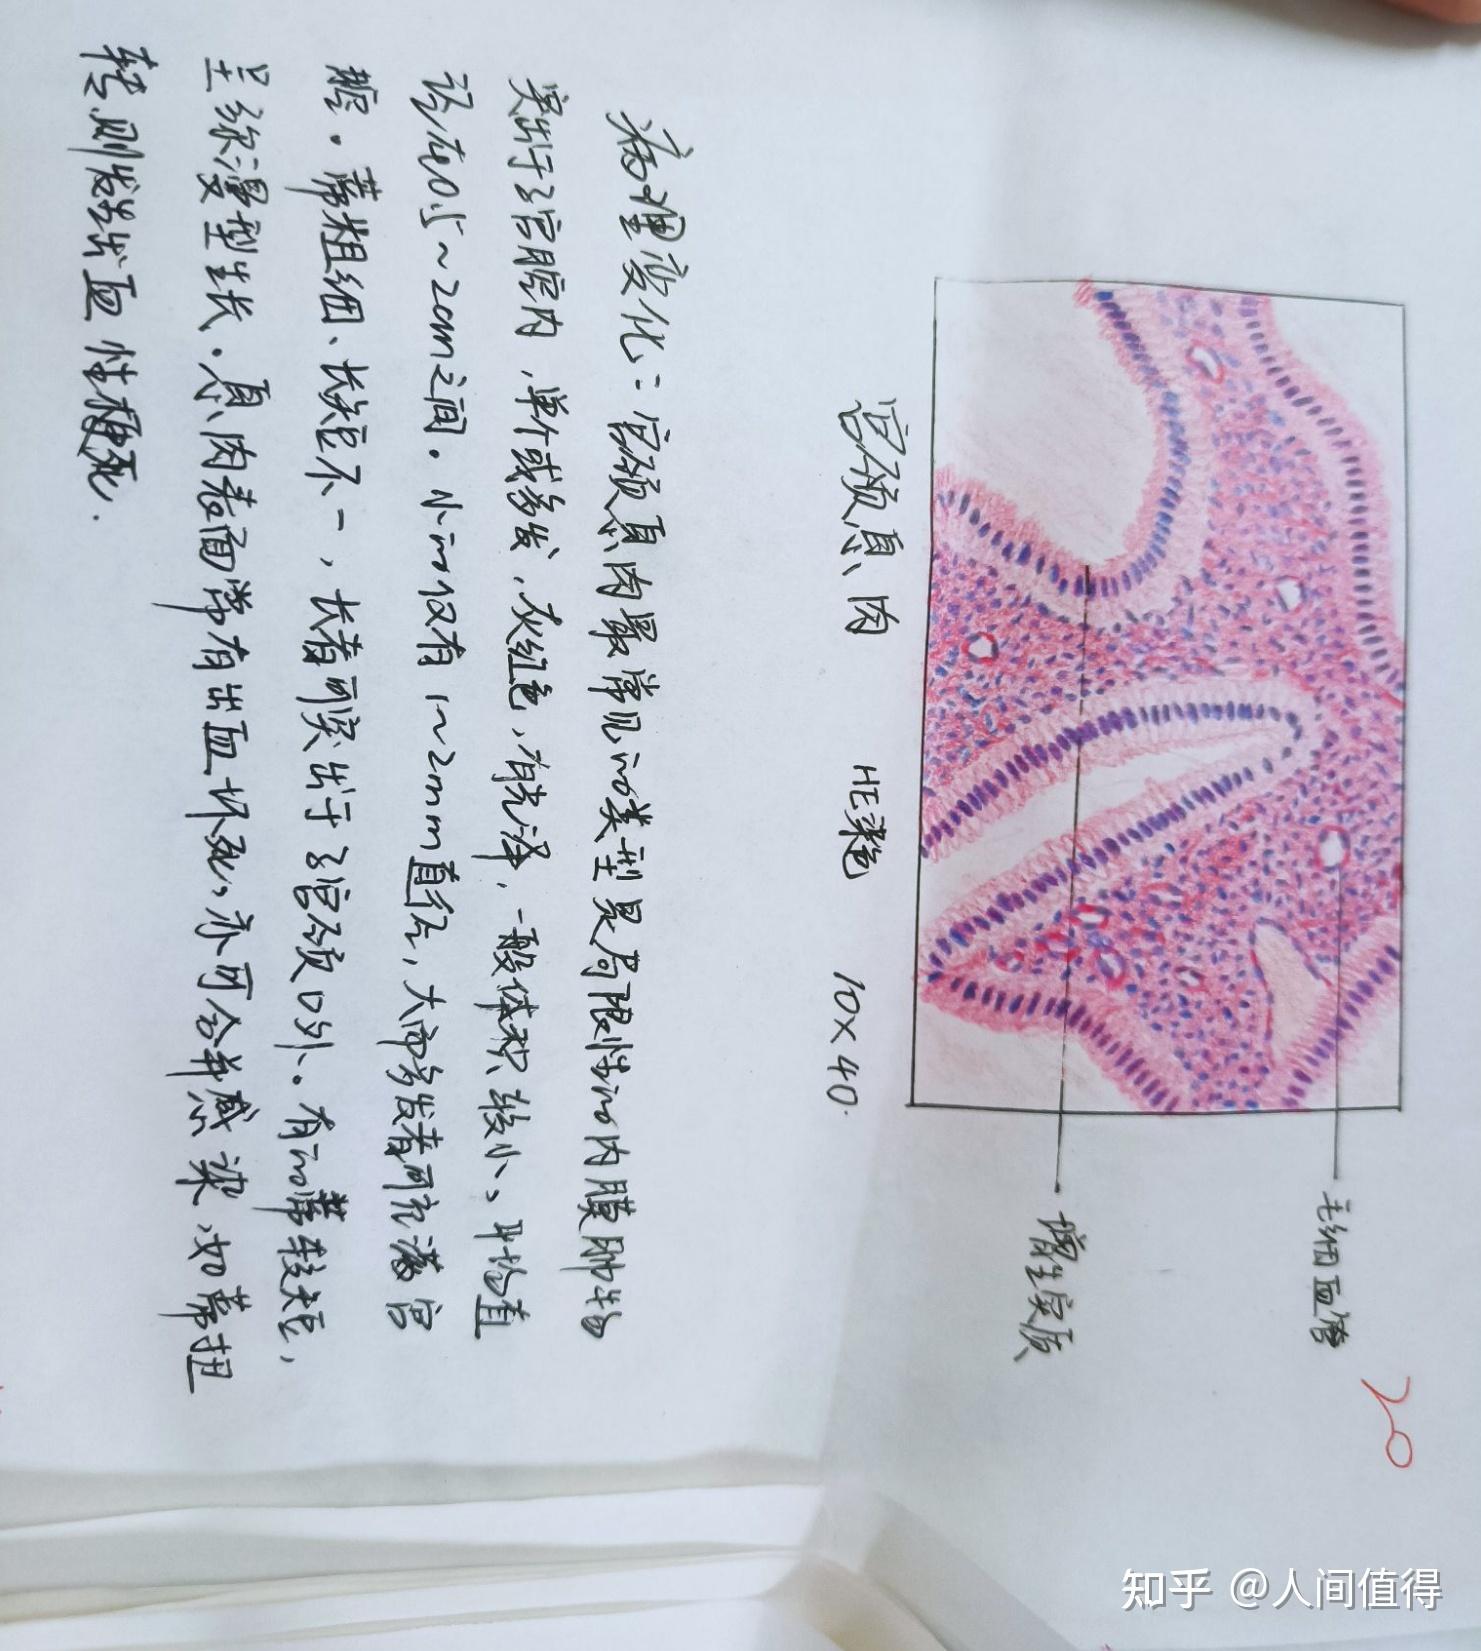 20
毛细血管
增生实质
宫颈息肉 HE染色 10×40.
病理变化：宫颈息肉最常见的类型是局限性的内膜肿物
突出于子宫腔内，单个或多发，灰红色，有光泽，一般体积较小、平均直
径在0.5～2cm之间。小的仅有1～2mm直径，大而多发者可充满宫
腔。蒂粗细、长短不一，长者可突出于子宫颈口外。有的蒂较短，
呈弥漫型生长。息肉表面常有出血坏死，亦可合并感染，如蒂扭
转，则发生出血性梗死.
知乎 @人间值得